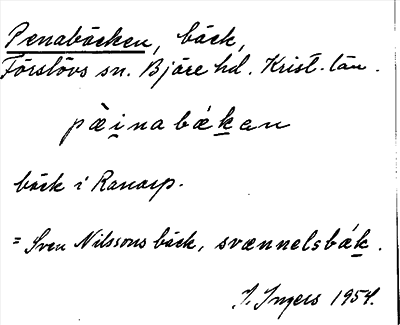 Penabäcken, bäck,
Förslövs sn. Bjäre hd. Krist. län.
pæ̀inabákan
bäck i Ranarp.
= Sven Nilssons bäck, svænnelsbák.
I. Ingers 1954.